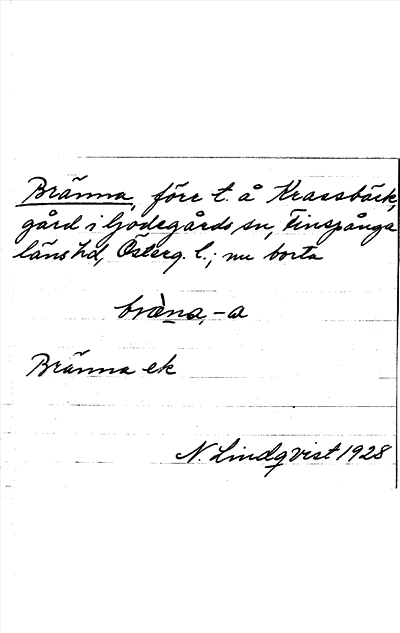 Bränna, förr t. å Krassbäck,
gård i Godegårds sn, Finspånga
läns hd, Österg. l.; nu borta
bræ̀na, -a
Bränna ek
N. Lindqvist 1928